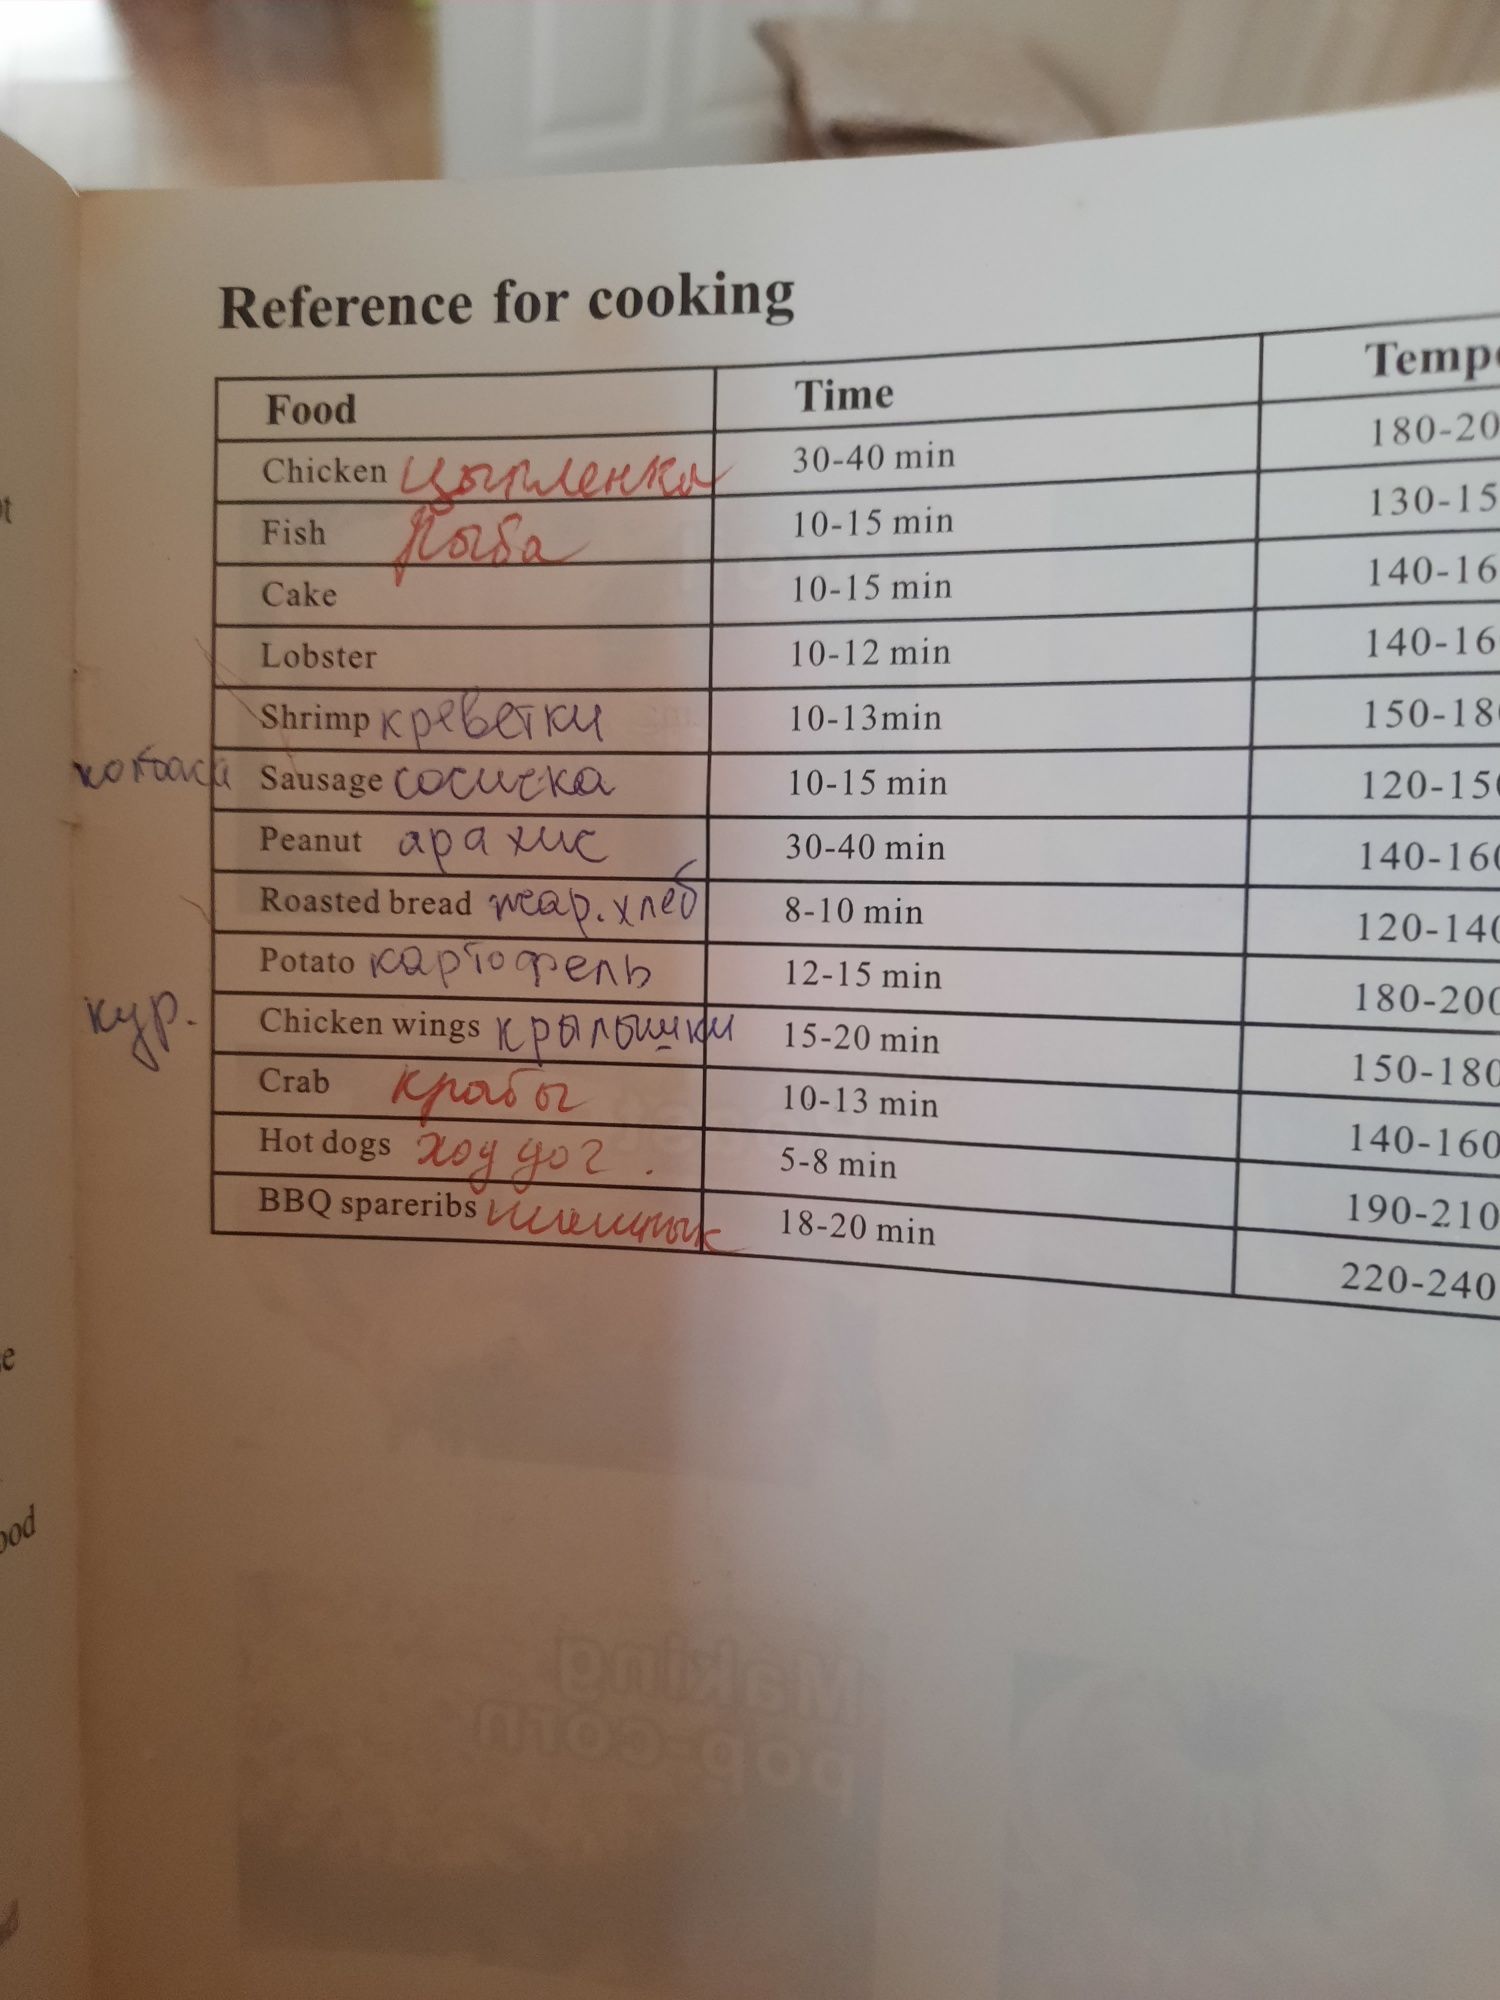 Reference for cooking
Food Time Tempe
Chicken цыпленка 30-40 min 180-20
Fish Рыба 10-15 min 130-15
Cake 10-15 min 140-16
Lobster 10-12 min 140-16
Shrimp креветки 10-13min 150-180
колбаса Sausage сосиска 10-15 min 120-150
Peanut арахис 30-40 min 140-160
Roasted bread жар. хлеб 8-10 min 120-140
Potato картофель 12-15 min 180-200
кур. Chicken wings крылышки 15-20 min 150-180
Crab крабы 10-13 min 140-160
Hot dogs ход дог. 5-8 min 190-210
BBQ spareribs 18-20 min 220-240
ood
Making
pop-corn